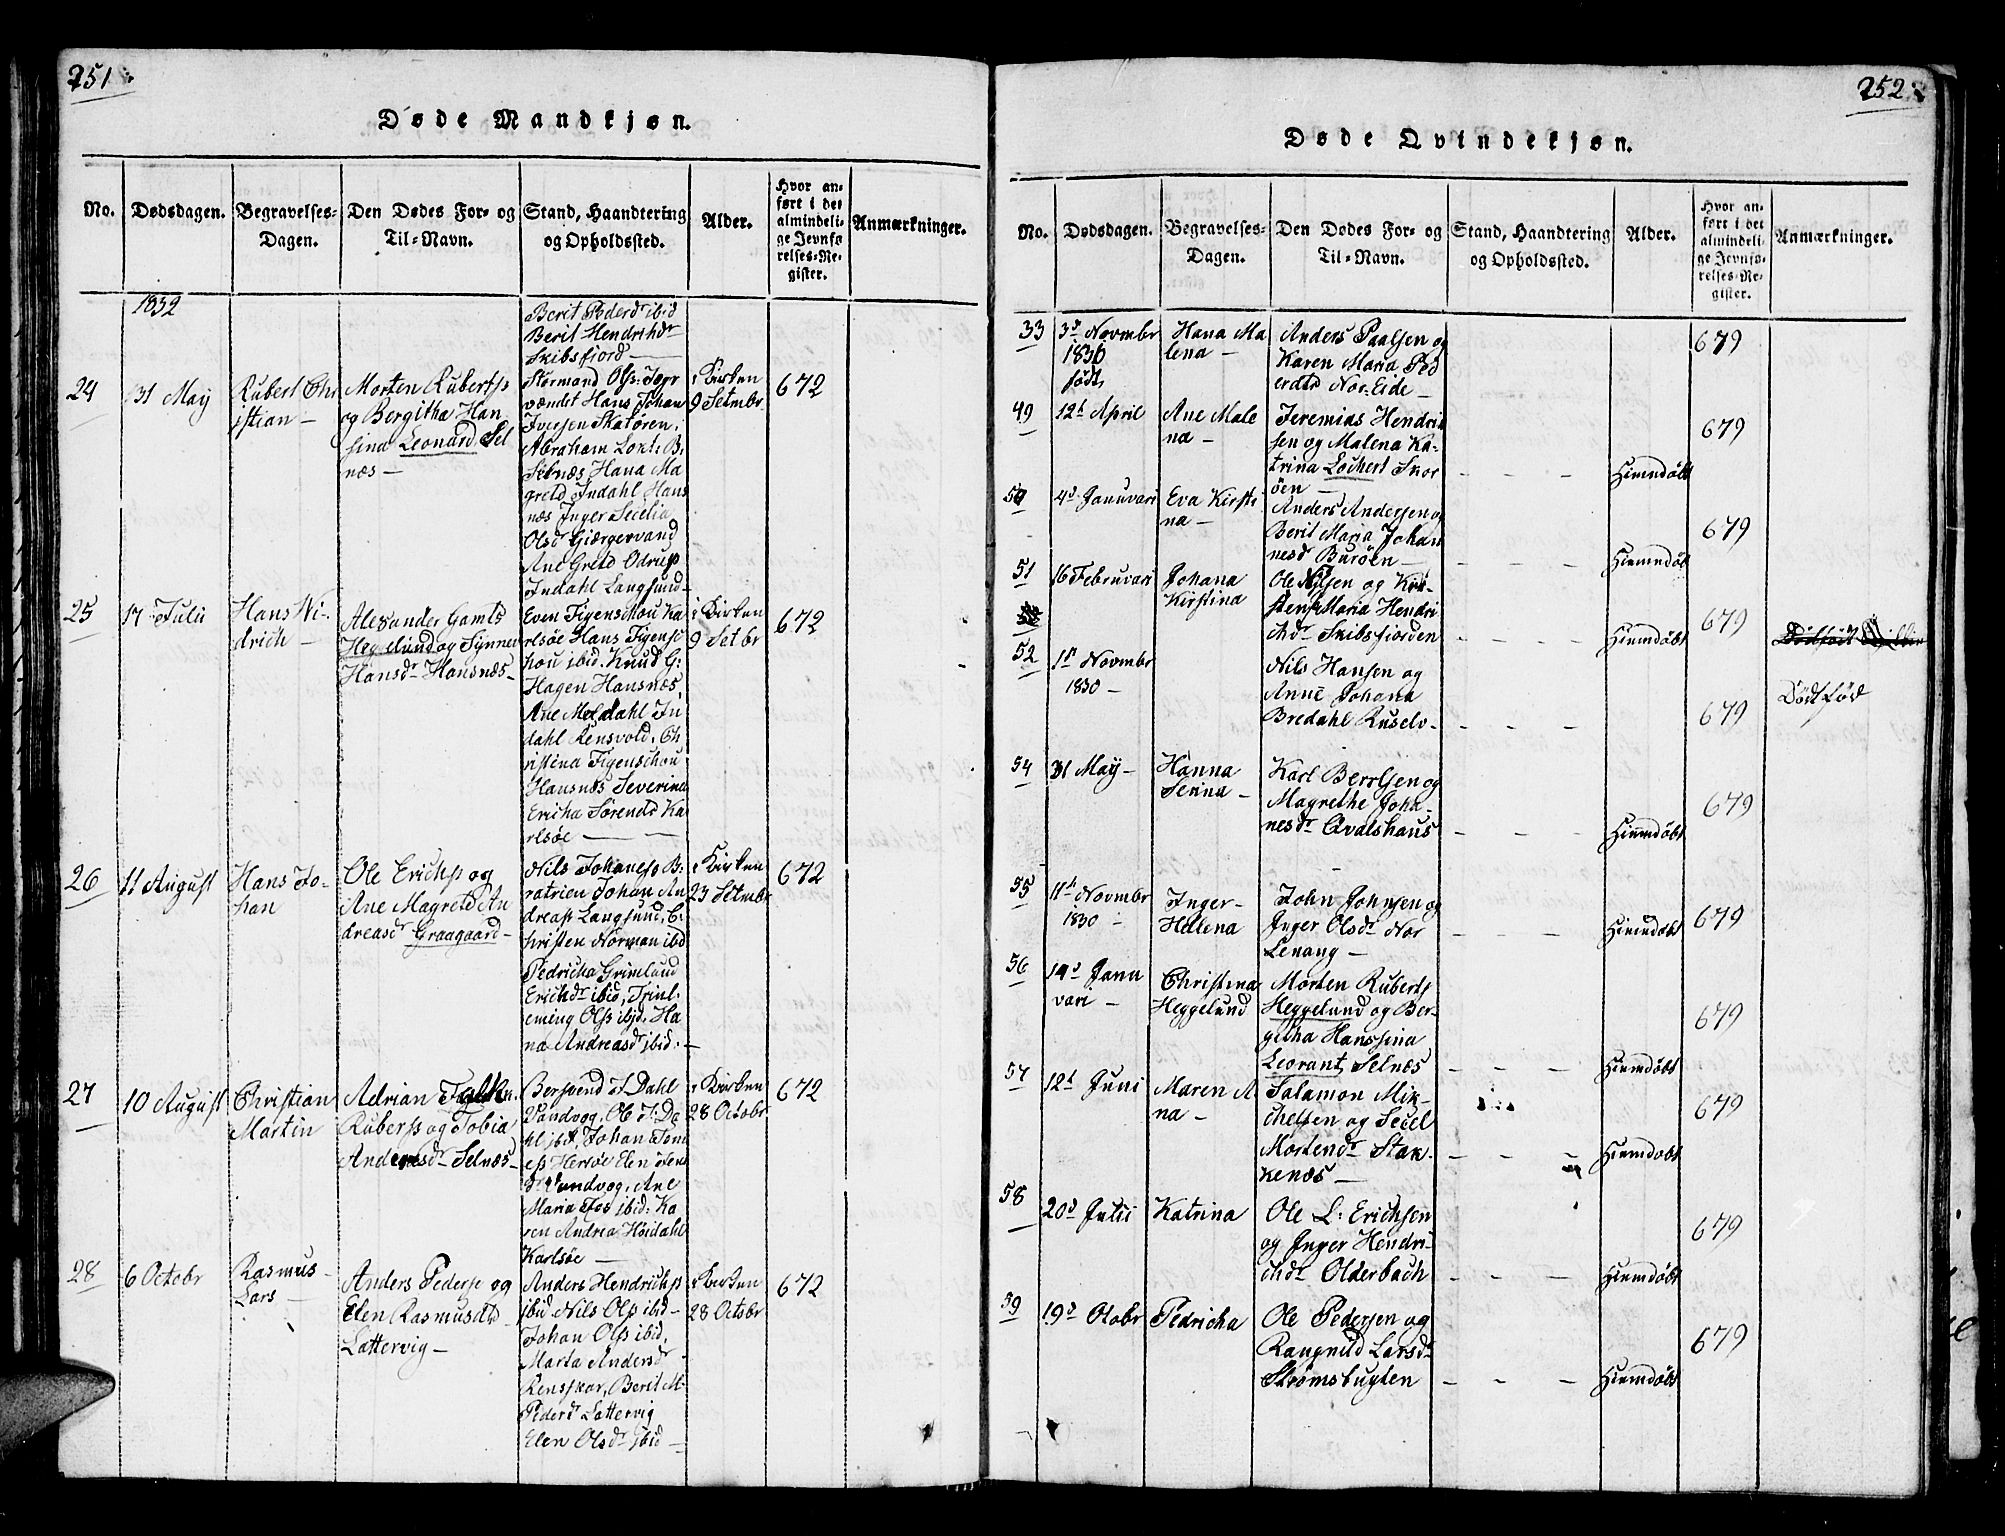 251
Døde Mandkjøn.
No.
Dødsdagen.
Begravelses-
Dagen.
Den Dødes For- og
Til-Navn.
Stand, Haandtering
og Opholdssted.
Alder.
Hvor an-
ført i det
almindeli-
ge Jevnfø
relses-Re-
gister.
Anmærkninger.
1832
Berit Pederdr ibid
Berit Hendrihdr
Skibsfjord —
24
31 May
Rubert Chr
istian —
Morten Ruberts
og Bergitha Han
sina Leonard Sel
næs —
Hans Johan
Iversen Skatøren,
Abraham
Selnæs Hana Ma
gretd Indahl Hans
næs Inger Secelia
Olsdr
Ane Gretd
Indahl Langsund
i Kirken
9 Setmbr
672
25
17 Julii
Hans
drich —
Alexander
Heggelund og Synnev
Hansdr Hansnæs
Even Figenschou Ka
rlsøe Hans Figensc
hou ibid. Knud G:
Hagen Hansnæs,
Ane Meldahl In
dahl Rensvold, Ch
ristina Figenschou
Hansnæs Severina
Ericha Sørensd Ka
rlsøe —
i Kirken
9 Setbr
672
26
11 August
Hans Jo-
han
Ole Erichs og
Ane Magretd An
dreasdr Graagaard
Nils Johanes B.
Johan An
dreas Langsund, C.
hristen Norman ibid
Pedricha Grimlund
Erichdr ibid,
Ols ibid, Ha
na Andreasdr ibid.
i Kirken
23 Setmbr
672
27
10 August
Christian
Martin
Adrian Falk
Rubers og Tobia
Andersdr Selnæs
Bersvend J. Dahl
Vandvog, Ole J: Da
hl ibd, Johan
Hersøe Elen Jens
dr Vandvog, Ane
Maria ibid: Ka
ren Andrea Høidahl
Karlsøe —
i Kirken
28 Octobr
672
28
6 Octobr
Rasmus
Lars —
Anders Peders og
Elen Rasmusdtr
Lattervig —
Anders Hendrichs
ibid Nils Ols ibid
Johan Ols ibid,
Marta Andersdr
Rensskar, Berit M.
Pedersd Lattervig
Elen Olsdr ibid
i Kirken
28 Octobr
672
252
Døde Qvindekjøn.
No.
Dødsdagen.
Begravelses-
Dagen.
Den Dødes For- og
Til-Navn.
Stand, Haandtering
og Opholdssted.
Alder.
Hvor an-
ført i det
almindeli-
ge Jevnfø-
relses-Re-
gister.
Anmærkninger.
33
3d Novmbr
1830
født,
Hana Ma
lena —
Anders Paalsen og
Karen Maria Ped
Nor-Eide —
679
49
12t April
Ane Male
na —
Jeremias Hendrik
sen og Malena Ka-
trina Lochert Skor
øen —
Hiemdøbt
679
50
4d Januvari
Eva Kirsti
na —
Anders Andersen og
Berit Maria Johan
nesd Burøen —
Hiemdøbt
679
51
16 Februvari
Johana
Kirstina
Ole Nilsen og Kir-
sten Maria Hendri
chdr Skibsfjorden
Hiemdøbt
679
52
1st Novmbr
1830 —
Nils Hansen og
Anne Johana
Bredahl Ruselv
679
Dødfød
54
31 May
Hanna
Serina —
Karl Berrlsen og
Magrethe Joha-
nesdr Qvalshaus
Hiemdøbt
679
55
11t Novmbr
1830 —
Inger
Helena
John Johnsen og
Inger Olsdr Nor
Lenang —
Hiemdøbt
679
56
14d Janu
vari —
Christina
Heggelund
Morten Ruberts
Heggelund og Ber-
getha Hanssina
Leorant, Selnæs
Hiemdøbt
679
57
12t Juni
Maren A
na —
Salamon Mik-
chelsen og Secel
Mortendr Stak-
kenæs —
Hiemdøbt
679
58
20d Julii
Katrina
Ole L: Erichsen
og Inger Hendri-
chdr Olderbach
Hiemdøbt
679
59
19d Otobr
Pedricha
Ole Pedersen og
Rangnild Larsdr
Strømsbugten
Hiemdøbt
679